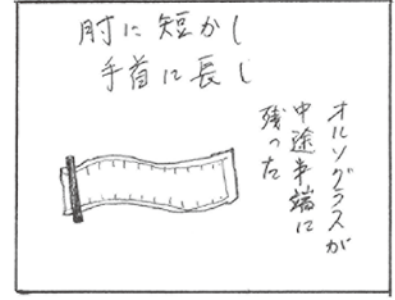 肘に短かし
手首に長し
オルソグラスが
中途半端に
残った